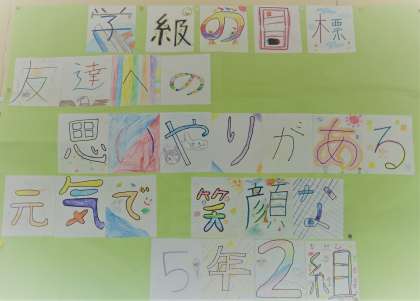 学級の目標
友達への
思いやりがある
元気で 笑顔な
5年2組